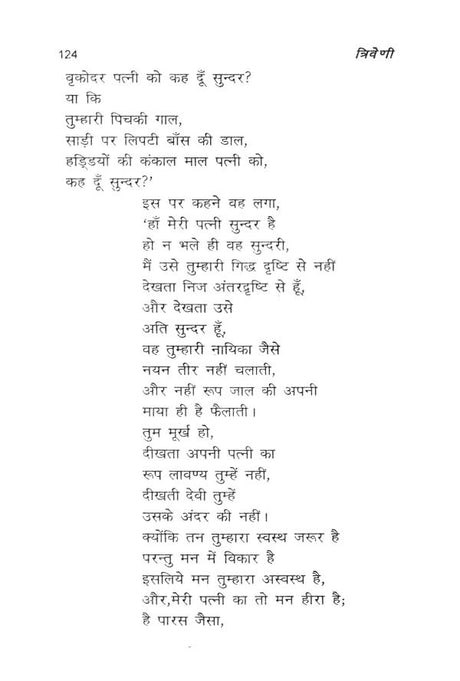 124 त्रिवेणी
वृकोदर पत्नी को कह दूँ सुन्दर?
या कि
तुम्हारी पिचकी गाल,
साड़ी पर लिपटी बाँस की डाल,
हड्डियों की कंकाल माल पत्नी को,
कह दूँ सुन्दर?'
इस पर कहने वह लगा,
'हाँ मेरी पत्नी सुन्दर है
हो न भले ही वह सुन्दरी,
मैं उसे तुम्हारी गिद्ध दृष्टि से नहीं
देखता निज अंतरदृष्टि से हूँ,
और देखता उसे
अति सुन्दर हूँ,
वह तुम्हारी नायिका जैसे
नयन तीर नहीं चलाती,
और नहीं रूप जाल की अपनी
माया ही है फैलाती।
तुम मूर्ख हो,
दीखता अपनी पत्नी का
रूप लावण्य तुम्हें नहीं,
दीखती देवी तुम्हें
उसके अंदर की नहीं।
क्योंकि तन तुम्हारा स्वस्थ जरूर है
परन्तु मन में विकार है
इसलिये मन तुम्हारा अस्वस्थ है,
और,मेरी पत्नी का तो मन हीरा है;
है पारस जैसा,